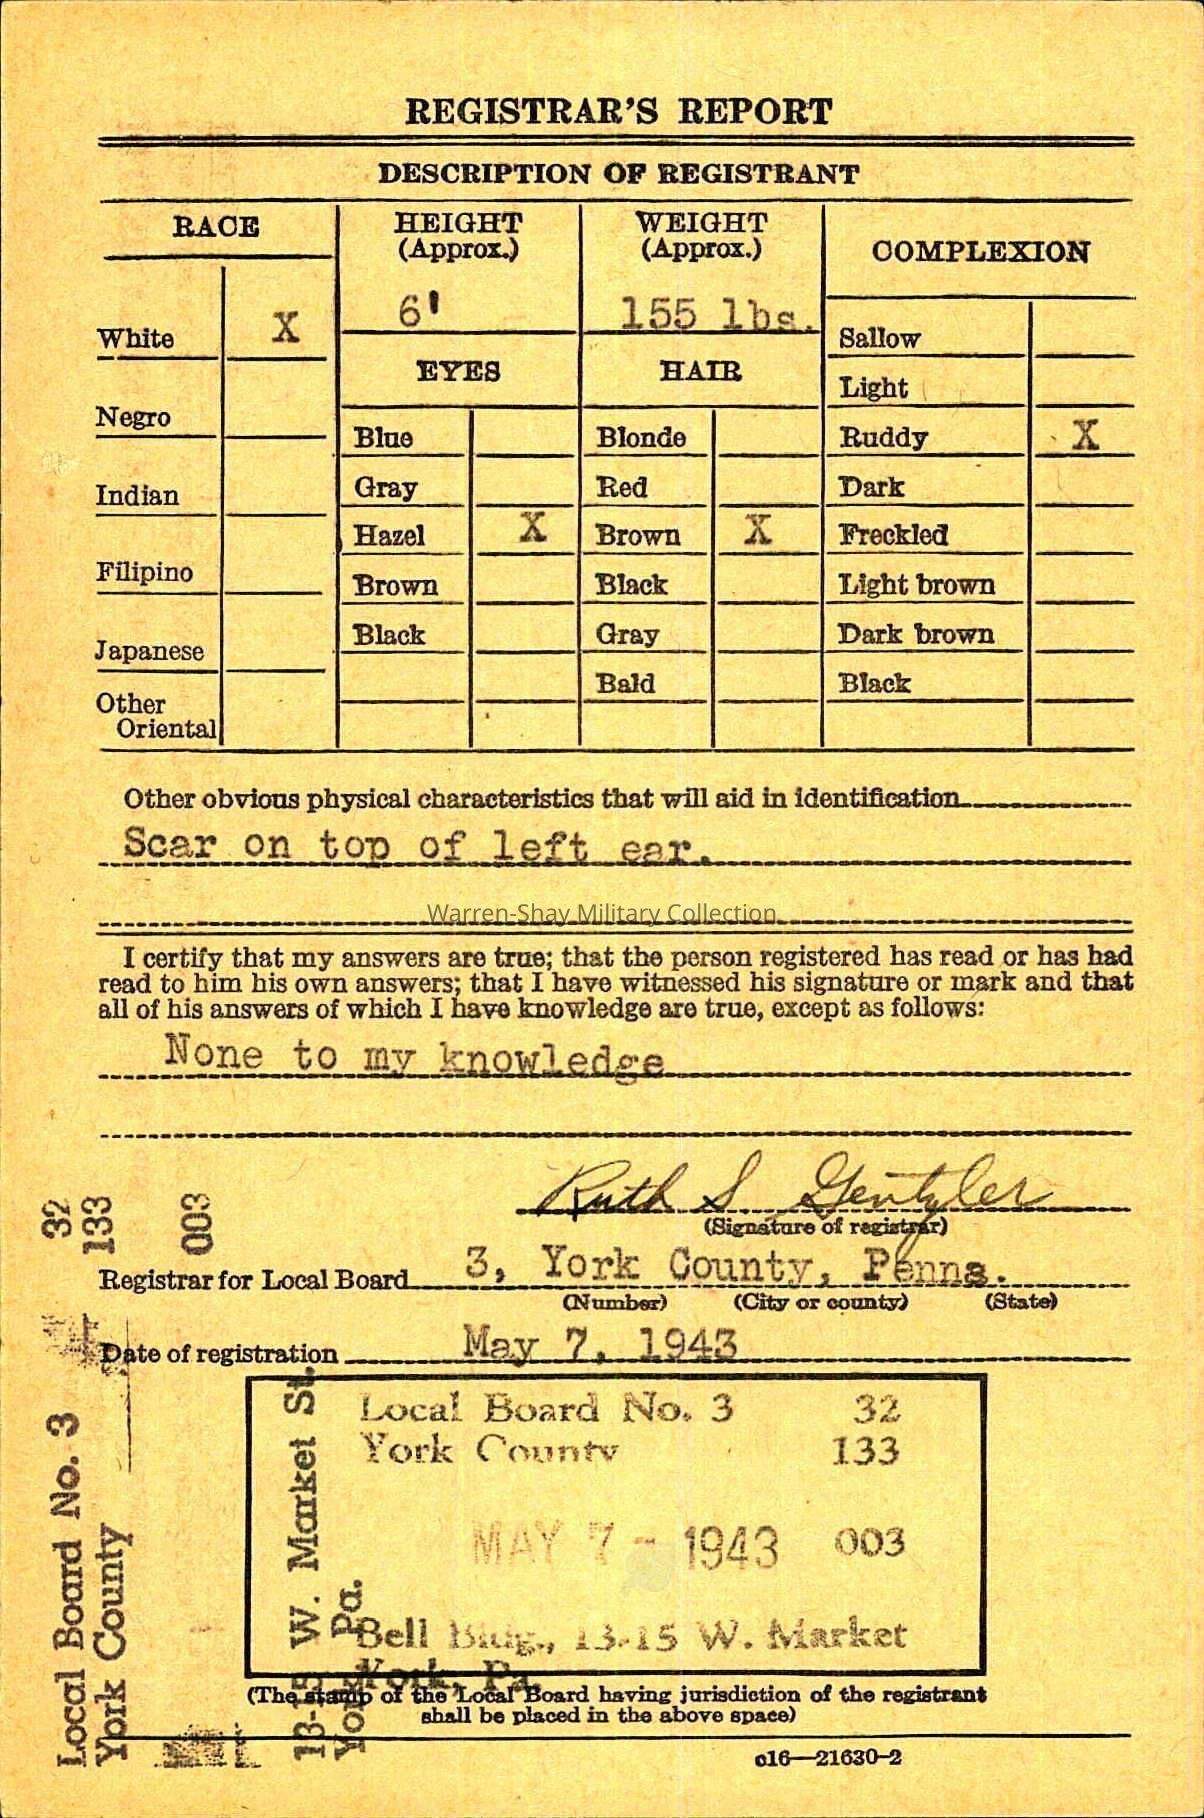 REGISTRAR'S REPORT
DESCRIPTION OF REGISTRANT
RACE
White X
Negro
Indian
Filipino
Japanese
Other
Oriental
HEIGHT
(Approx.)
6'
WEIGHT
(Approx.)
155 lbs.
EYES
Blue
Gray
Hazel X
Brown
Black
HAIR
Blonde
Red
Brown X
Black
Gray
Bald
COMPLEXION
Sallow
Light
Ruddy X
Dark
Freckled
Light brown
Dark brown
Black
Other obvious physical characteristics that will aid in identification
Scar on top of left ear.
Warren-Shay Military Collection
I certify that my answers are true; that the person registered has read or has had
read to him his own answers; that I have witnessed his signature or mark and that
all of his answers of which I have knowledge are true, except as follows:
None to my knowledge
Ruth S. Gentzler
(Signature of registrar)
Registrar for Local Board 3, York County, Penna.
(Number) (City or county) (State)
Date of registration May 7, 1943
Local Board No. 3 32
York County 133
MAY 7 - 1943 003
Bell Bldg., 13-15 W. Market
York, Pa.
(The stamp of the Local Board having jurisdiction of the registrant
shall be placed in the above space)
c16—21630-2
Local Board No. 3 32
York County 133
003
13-15 W. Market St.
York Pa.